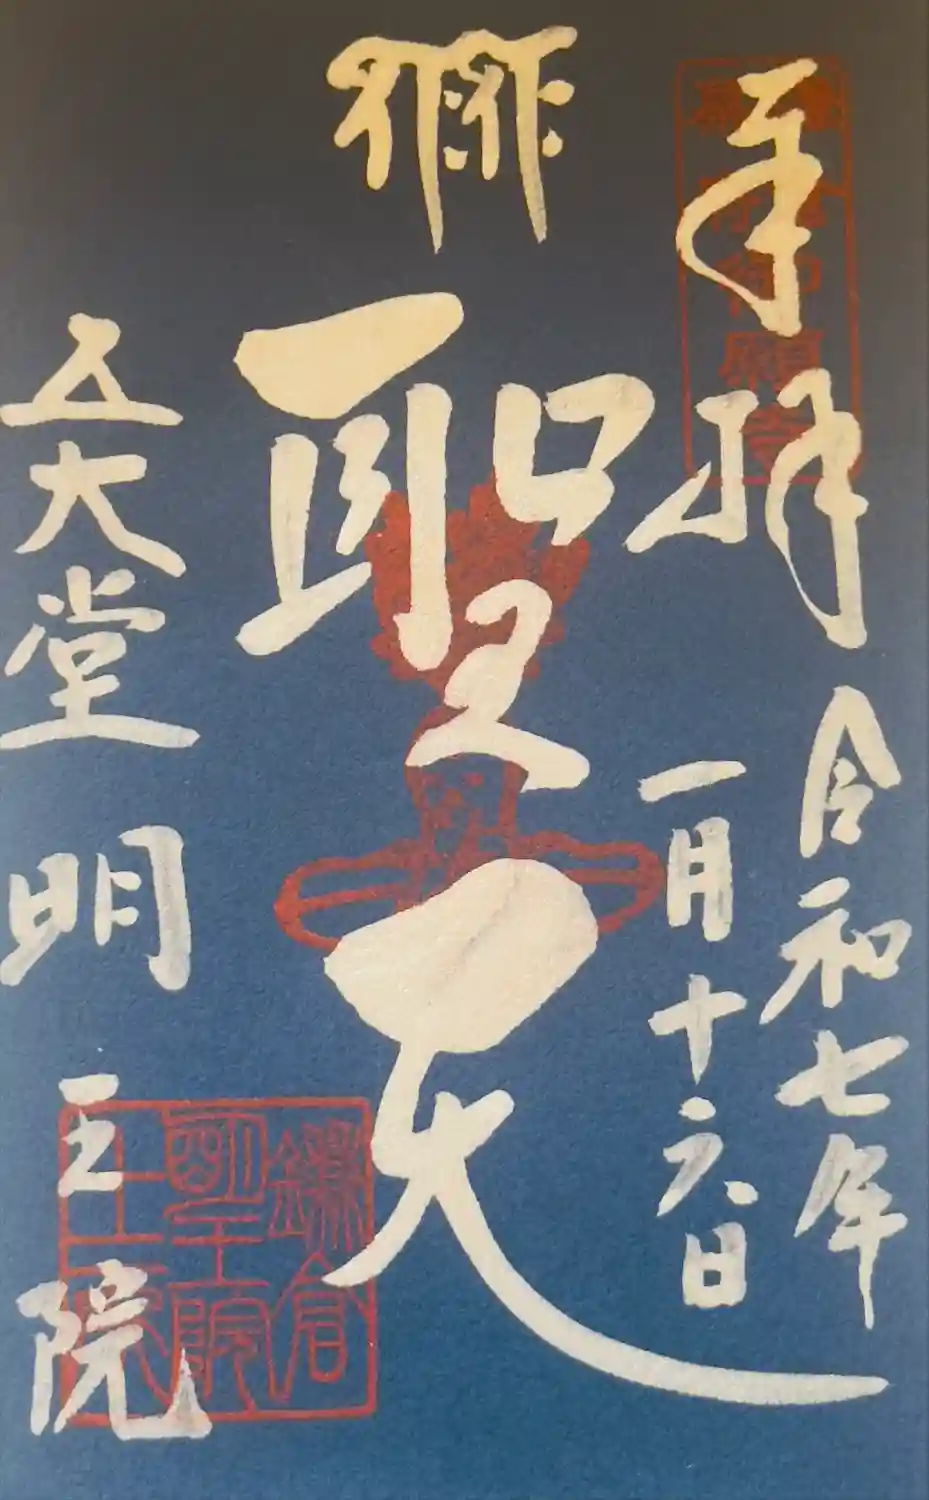 奉拝
令和七年
一月十六日
聖天
五大堂
明王院
鎌倉
明王院